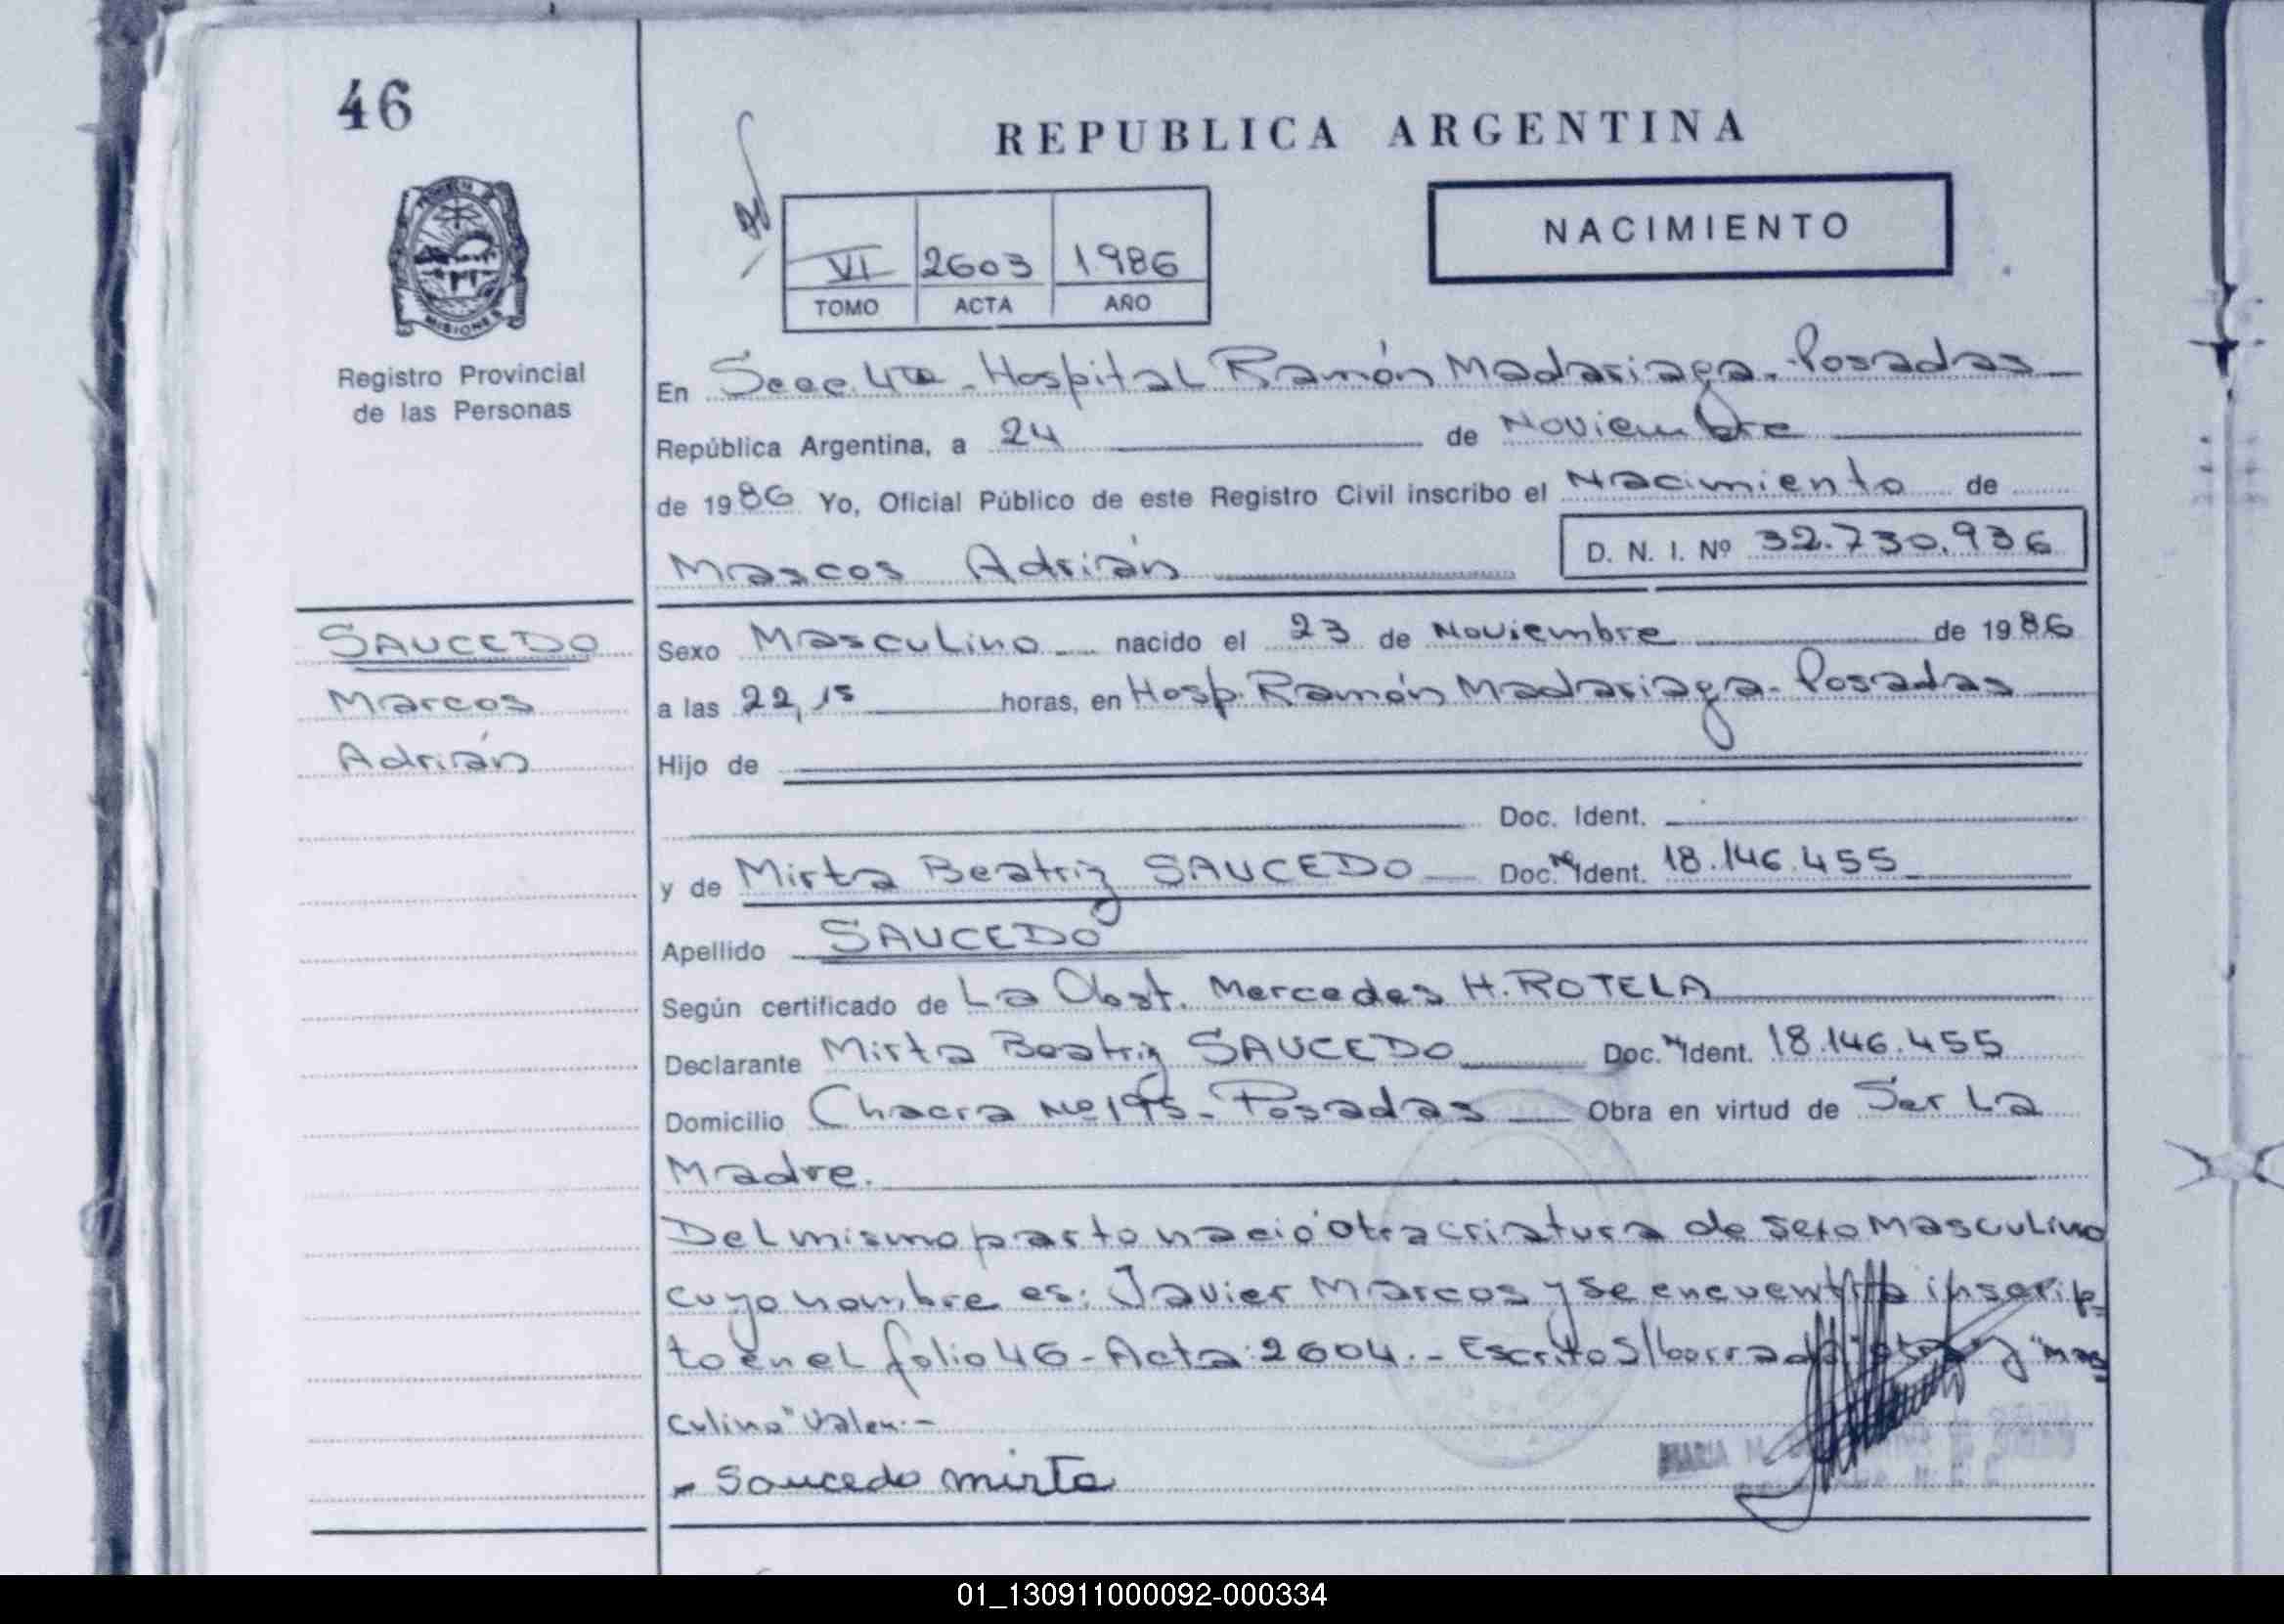 46
REPUBLICA ARGENTINA
NACIMIENTO
VI 2603 1986
TOMO ACTA AÑO
MISIONES
Registro Provincial
de las Personas
En Secc. 4ta - Hospital Ramón Madariaga - Posadas
República Argentina, a 24 de Noviembre
de 1986 Yo, Oficial Público de este Registro Civil inscribo el Nacimiento de
Marcos Adrián D. N. I. Nº 32.730.936
SAUCEDO
Marcos
Adrián
Sexo Masculino nacido el 23 de Noviembre de 1986
a las 22,15 horas, en Hosp. Ramón Madariaga - Posadas
Hijo de
Doc. Ident.
y de Mirta Beatriz SAUCEDO Doc. Nº Ident. 18.146.455
Apellido SAUCEDO
Según certificado de La Obst. Mercedes H. ROTELA
Declarante Mirta Beatriz SAUCEDO Doc. Nº Ident. 18.146.455
Domicilio Chacra Nº 195 - Posadas Obra en virtud de Ser La
Madre.
Del mismo parto nació otra criatura de sexo Masculino
cuyo nombre es: Javier Marcos y se encuentra inscrip-
to en el folio 46 - Acta: 2604. - Escrito S/borrado "otra" y "mas
culino" Valen. -
- Saucedo mirta
01_130911000092-000334